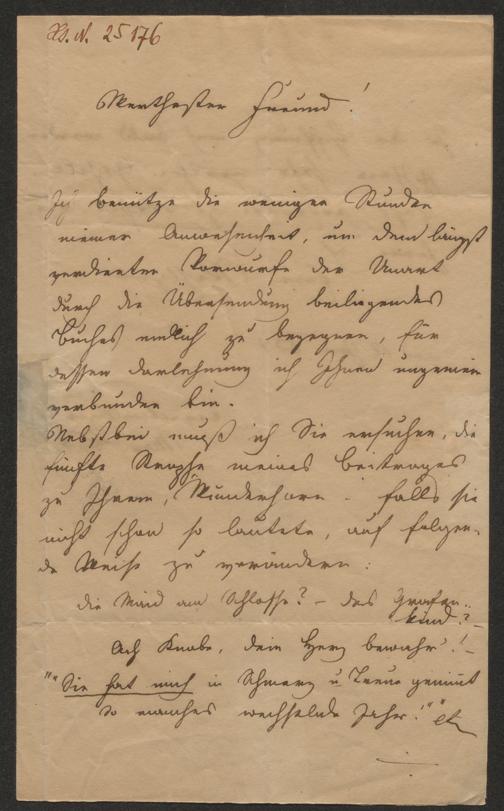 H. N. 25176
Werthester Freund!
Ich benütze die wenigen Stunden
meiner Anwesenheit, um dem längst
verdienten Vorwurfe der Unart
durch die Übersendung beiliegendes
Buches endlich zu begegnen, für
dessen Darlehnung ich Ihnen ungemein
verbunden bin.
Nebstbei muß ich Sie ersuchen, die
fünfte Strophe meines Beitrages
zu Ihrem, Wunderhorn - falls sie
nicht schon so lautete, auf folgen-
de Weise zu verändern:
die Maid am Schlosse? - des Grafen-
kind? -
Ach Knabe, dein Herz bewahr'! -
""Sie hat mich in Schmerz u Treue geminnt
So manches wechselnde Jahr."" etc